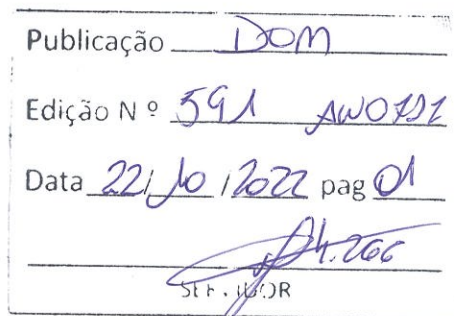 Publicação DOM
Edição Nº 591
Data 22/10/2022 pag 01
SERVIDOR